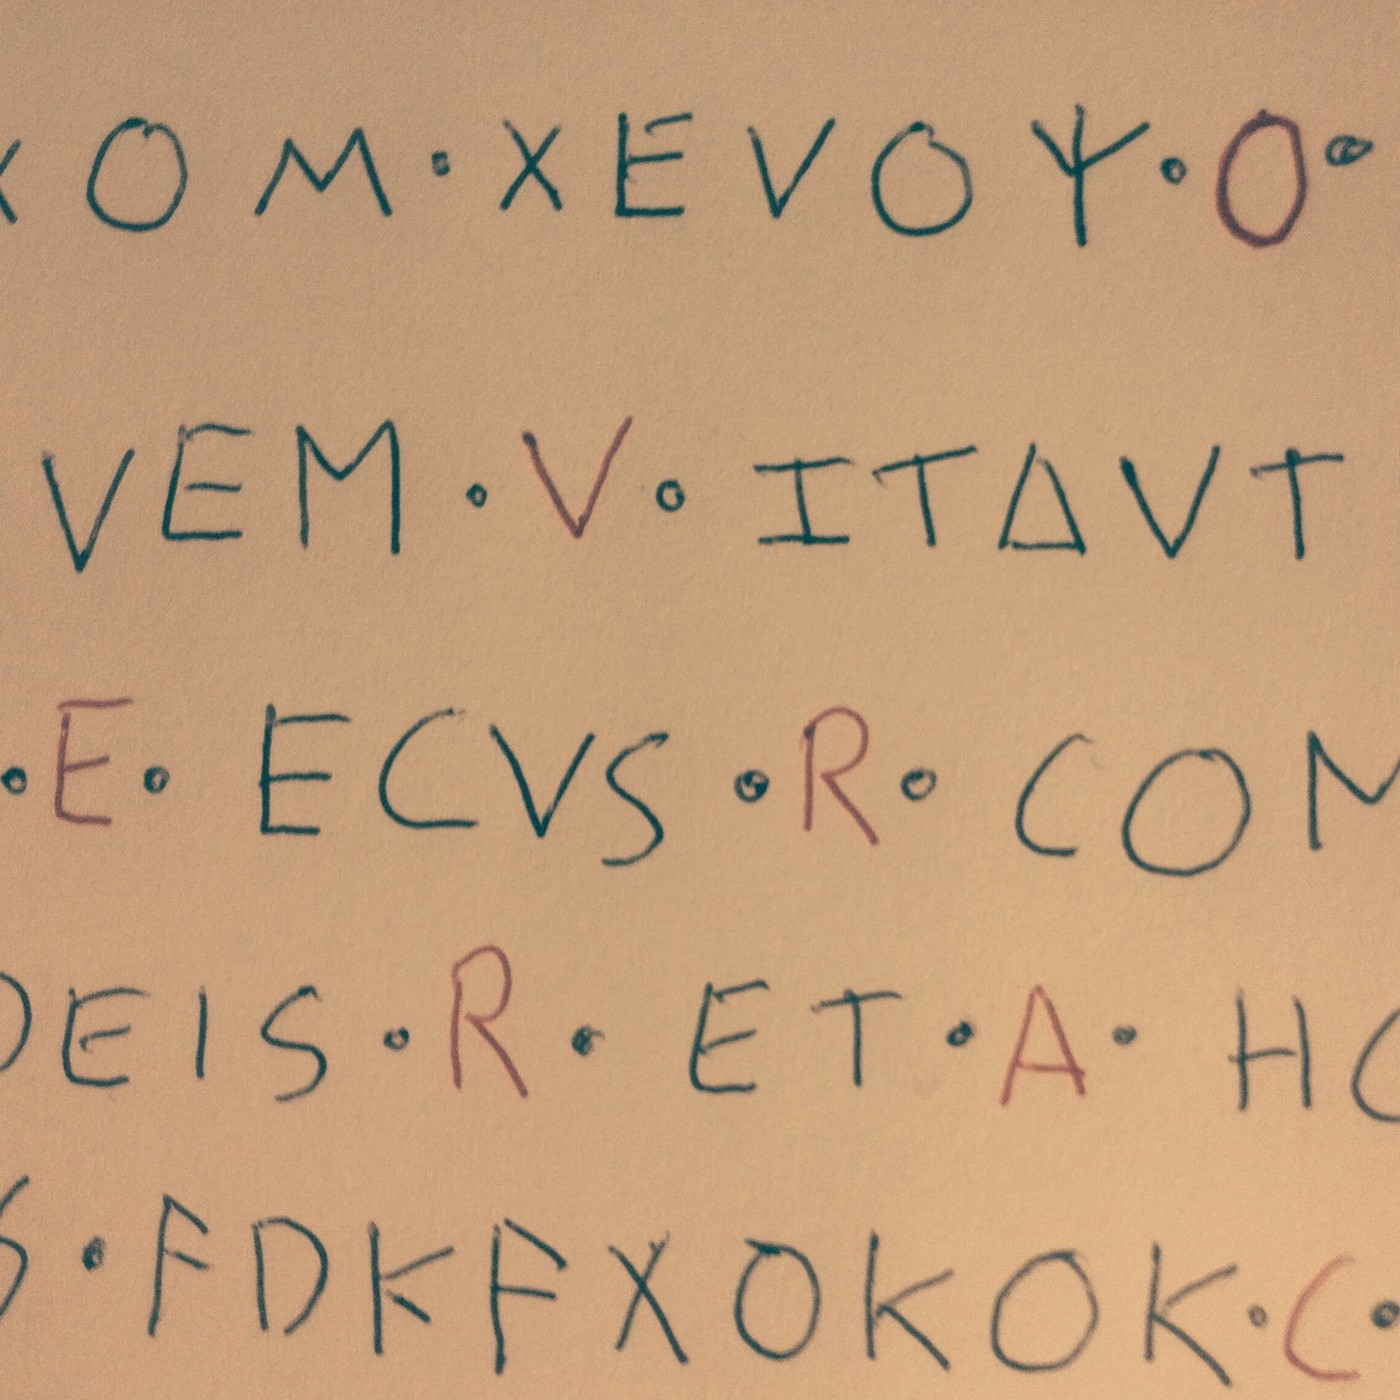 XOM·XEVOΨ·O·
VEM·V·ITΔVT
·E·ECVS·R·COM
DEIS·R·ET·A·HO
S·FDKFXOKOK·C·